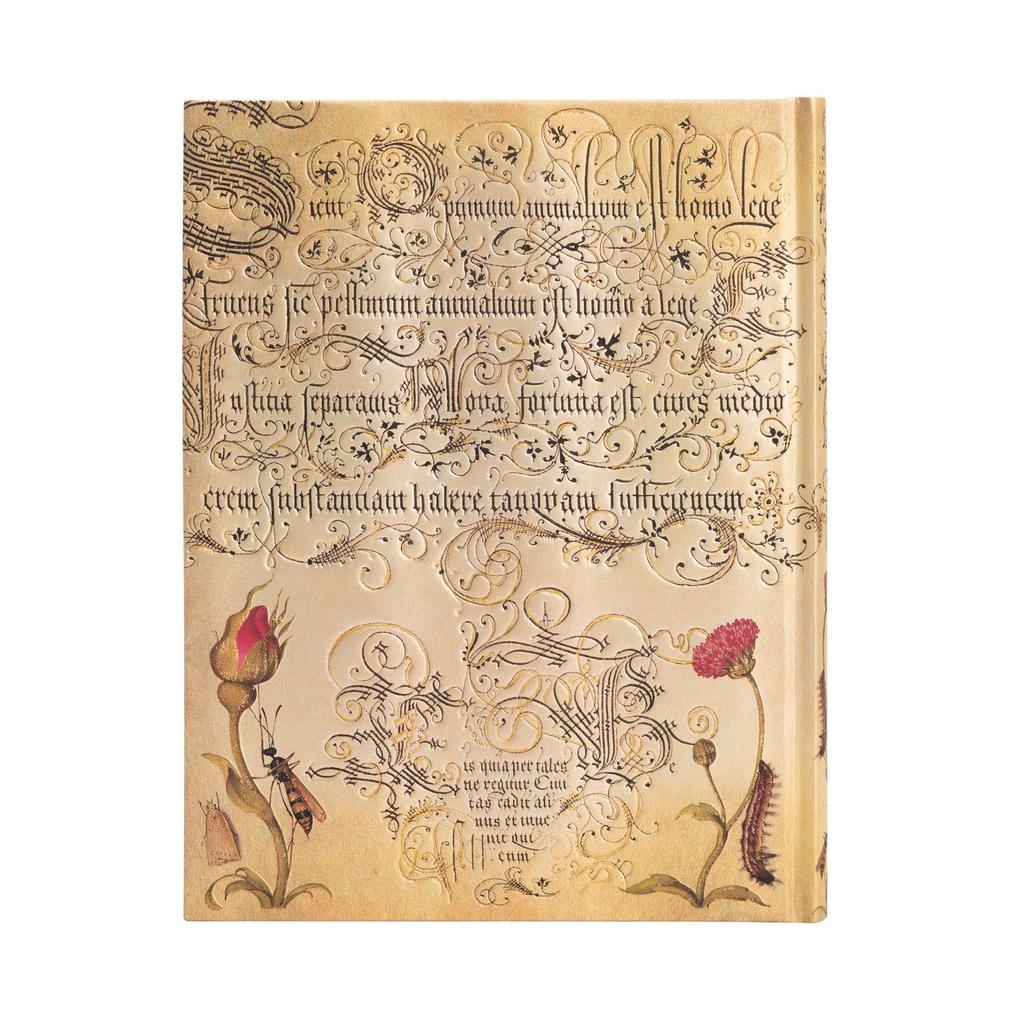 Sicut Optimum animalium est homo lege
fruens sic pessimum animalium est homo a lege
Iustitia separatus Nova fortuna est, cives medio
crem substantiam habere tanqvam sufficientem
is quia per tales
ne regitur, Civi
tas cadit
nus et inve
nit qui
cum